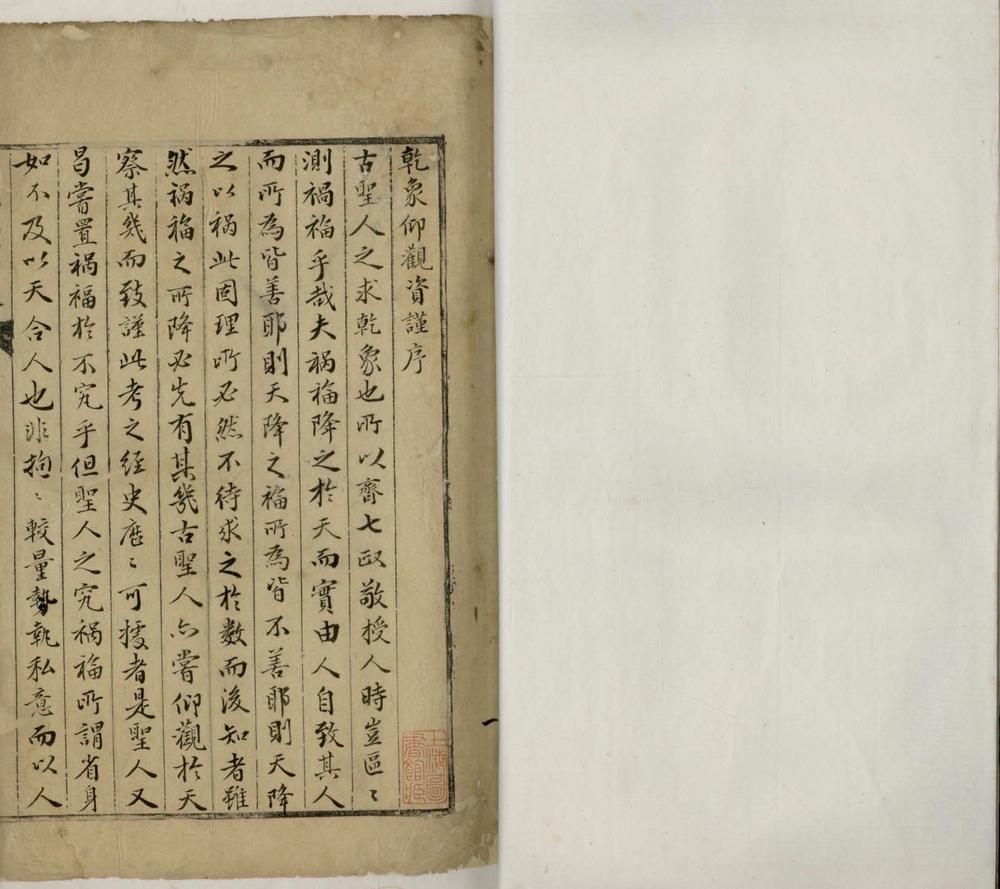 乾象仰觀資謹序
古聖人之求乾象也所以齊七政敬授人時豈區〻
測禍福乎哉夫禍福降之於天而實由人自致其人
而所為皆善耶則天降之福所為皆不善耶則天降
之以禍此固理所必然不待求之於數而後知者雖
然禍福之所降必先有其幾古聖人亦嘗仰觀於天
察其幾而致謹此考之經史歷〻可據者是聖人又
曷嘗置禍福於不究乎但聖人之究禍福所謂省身
如不及以天合人也非拘〻較量勢執私意而以人
上海圖書館藏